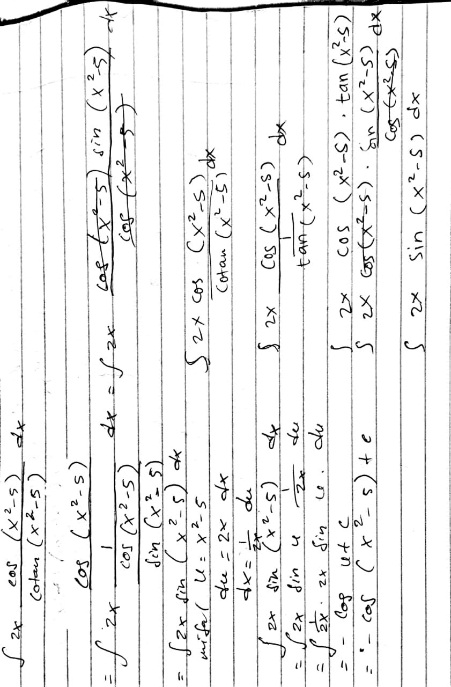 ∫ 2x cos (x²-5) / cotan (x²-5) dx
= ∫ 2x cos (x²-5) / (cos (x²-5) / sin (x²-5)) dx = ∫ 2x cos (x²-5) sin (x²-5) / cos (x²-5) dx
= ∫ 2x sin (x²-5) dx
misal u = x²-5
du = 2x dx
dx = 1/2x du
∫ 2x sin (x²-5) dx
= ∫ 2x sin u 1/2x du
= ∫ 1/2x · 2x sin u · du
= - cos u + c
= - cos (x²-5) + c
∫ 2x cos (x²-5) / cotan (x²-5) dx
∫ 2x cos (x²-5) / (1 / tan (x²-5)) dx
∫ 2x cos (x²-5) · tan (x²-5)
∫ 2x cos (x²-5) · sin (x²-5) / cos (x²-5) dx
∫ 2x sin (x²-5) dx